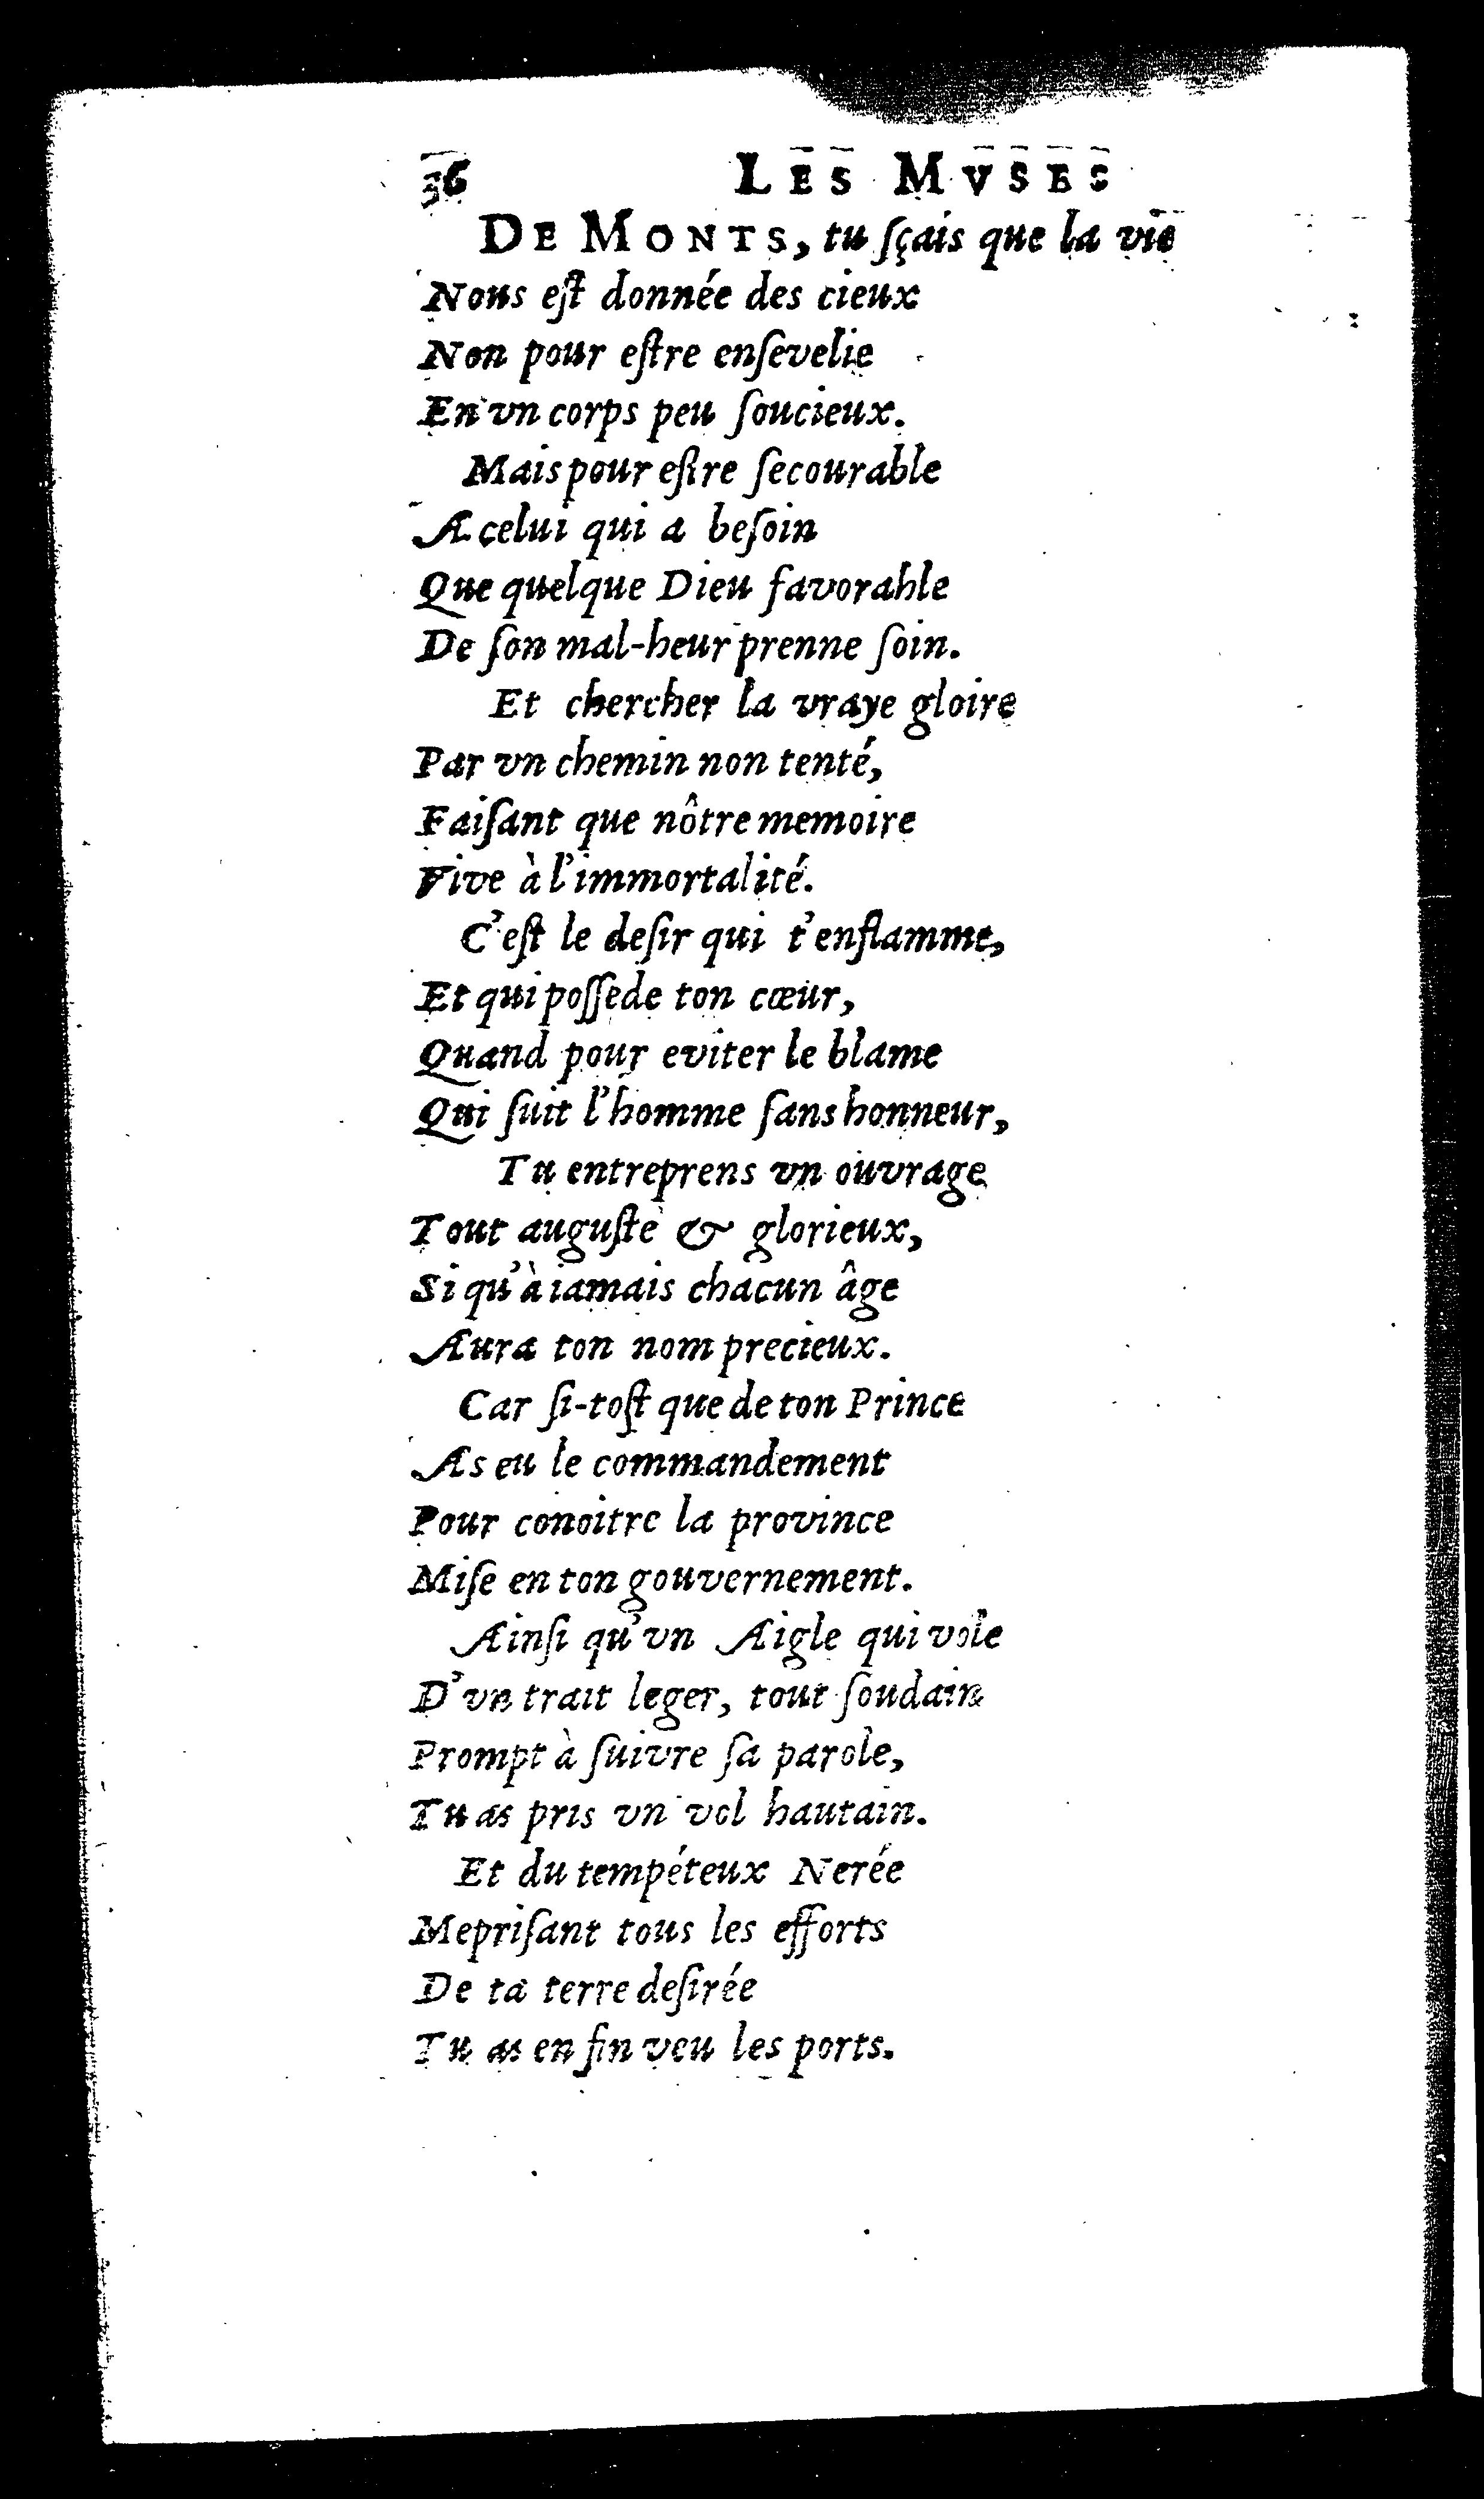 36 LES MVSES
DE MONTS, tu ſçais que la vie
Nous eſt donnée des cieux
Non pour eſtre enſevelie
En vn corps peu ſoucieux.
Mais pour eſtre ſecourable
A celui qui a beſoin
Que quelque Dieu favorable
De ſon mal-heur prenne ſoin.
Et chercher la vraye gloire
Par vn chemin non tenté,
Faiſant que nôtre memoire
Vive à l'immortalité.
C'eſt le deſir qui t'enflamme,
Et qui poſſede ton cœur,
Quand pour eviter le blame
Qui ſuit l'homme ſans honneur,
Tu entreprens vn ouvrage
Tout auguſte & glorieux,
Si qu'à iamais chacun âge
Aura ton nom precieux.
Car ſi-toſt que de ton Prince
As eu le commandement
Pour conoitre la province
Miſe en ton gouvernement.
Ainſi qu'vn Aigle qui vole
D'vn trait leger, tout ſoudain
Prompt à ſuivre ſa parole,
Tu as pris vn vol hautain.
Et du tempéteux Nerée
Mepriſant tous les efforts
De ta terre deſirée
Tu as en fin veu les ports.